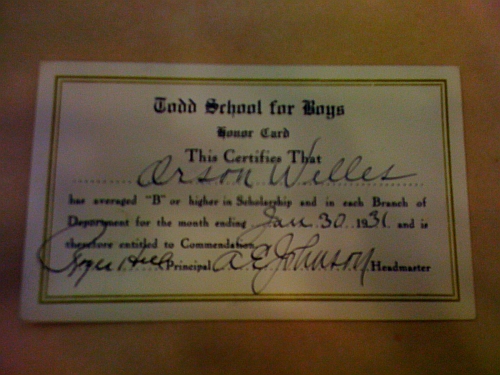 Todd School for Boys
Honor Card
This Certifies That
Orson Welles
has averaged "B" or higher in Scholarship and in each Branch of
Department for the month ending Jan 30 1931 and is
therefore entitled to Commendation
Roger Hill Principal A E Johnson Headmaster